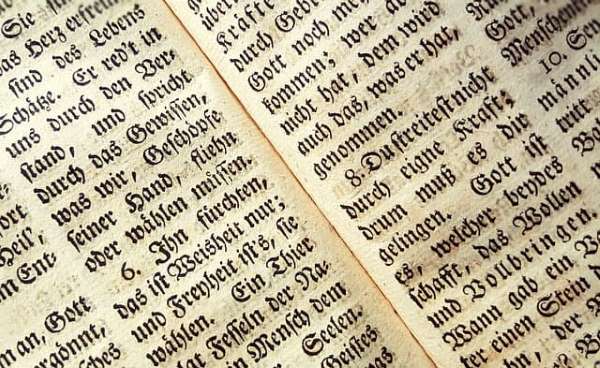 Sie
das Herz erfreun
sind des Lebens
Schätze. Er red't in
uns durch den Ver-
stand, und spricht
durch das Gewissen,
was wir, Geschöpfe
seiner Hand, fliehn
oder wählen müssen.
6. Ihn fürchten,
das ist Weisheit nur;
und Freyheit ist's, sie
wählen. Ein Thier
Fesseln der Na-
Mensch dem
Seelen.
Geistes
Heil,
Ent-
man, Gott
vergönnt,
Kräfte
durch Gebe
Gott noch me
kommen; wer
nicht hat, dem wird
auch das, was er hat,
genommen.
8. Du streitest nicht
durch eigne Kraft;
drum muß es dir
gelingen. Gott ist
es, welcher beydes
schafft, das Wollen
und Vollbringen.
Wann gab ein Va-
ter einen Stein
der
Gott,
Menschen
10.
männli
ritt